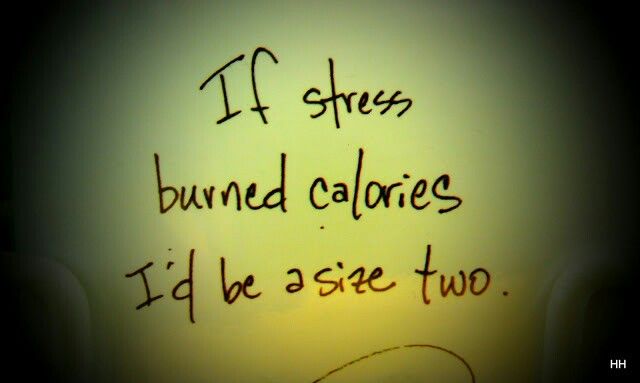 If stress
burned calories
I'd be a size two.
HH